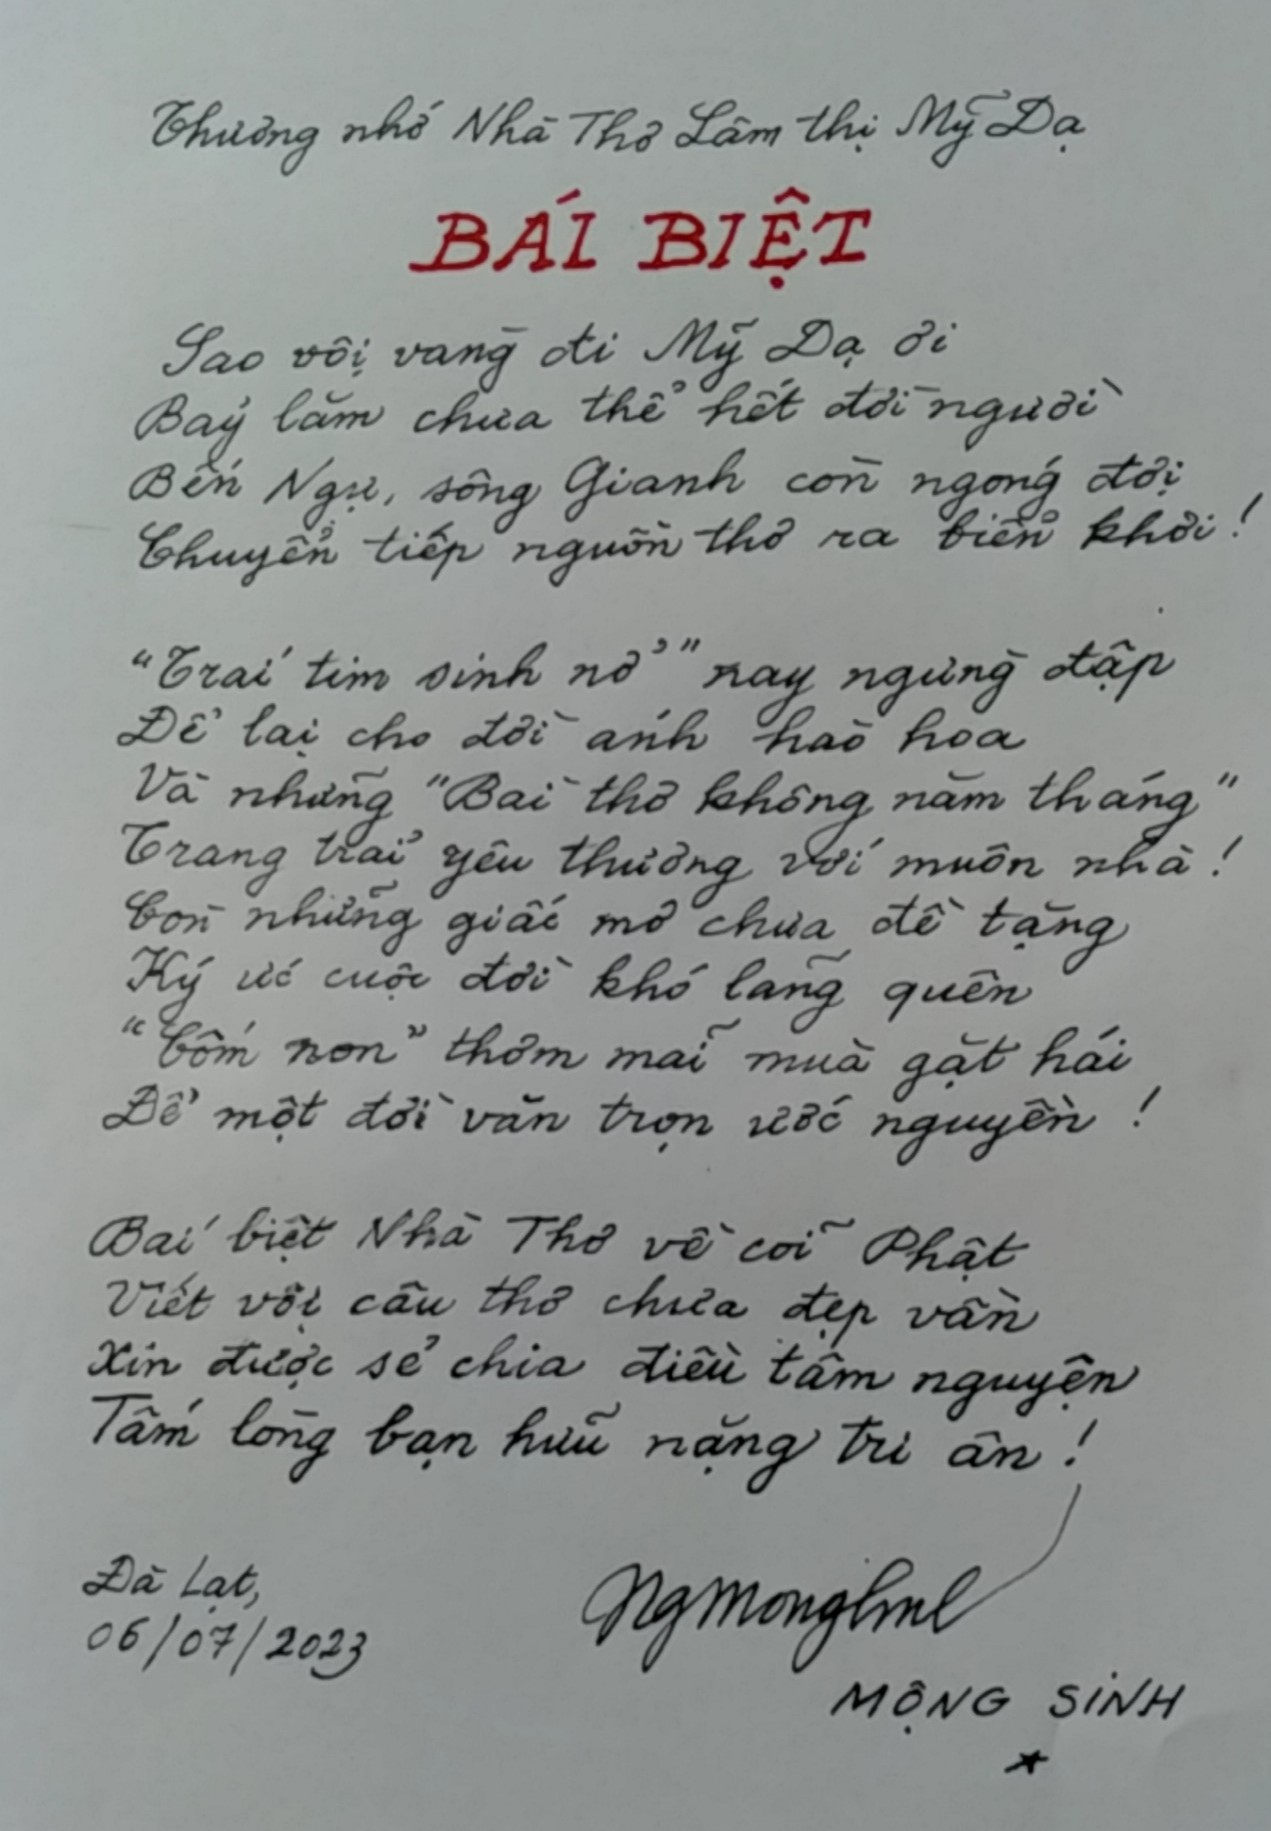 Thương nhớ Nhà Thơ Lâm thị Mỹ Dạ
BÁI BIỆT
Sao vội vàng đi Mỹ Dạ ơi
Bảy lăm chưa thể hết đời người
Bến Ngự, sông Gianh còn ngóng đợi
Chuyển tiếp nguồn thơ ra biển khơi!
"Trái tim sinh nở" nay ngừng đập
Để lại cho đời ánh hào hoa
Và những "Bài thơ không năm tháng"
Trang trải yêu thương với muôn nhà!
Còn những giấc mơ chưa đề tặng
Ký ức cuộc đời khó lãng quên
"Cốm non" thơm mãi mùa gặt hái
Để một đời văn trọn ước nguyền!
Bái biệt Nhà Thơ về cõi Phật
Viết vội câu thơ chưa đẹp vần
Xin được sẻ chia điều tâm nguyện
Tấm lòng bạn hữu nặng tri ân!
Đà Lạt,
06/07/2023
MỘNG SINH